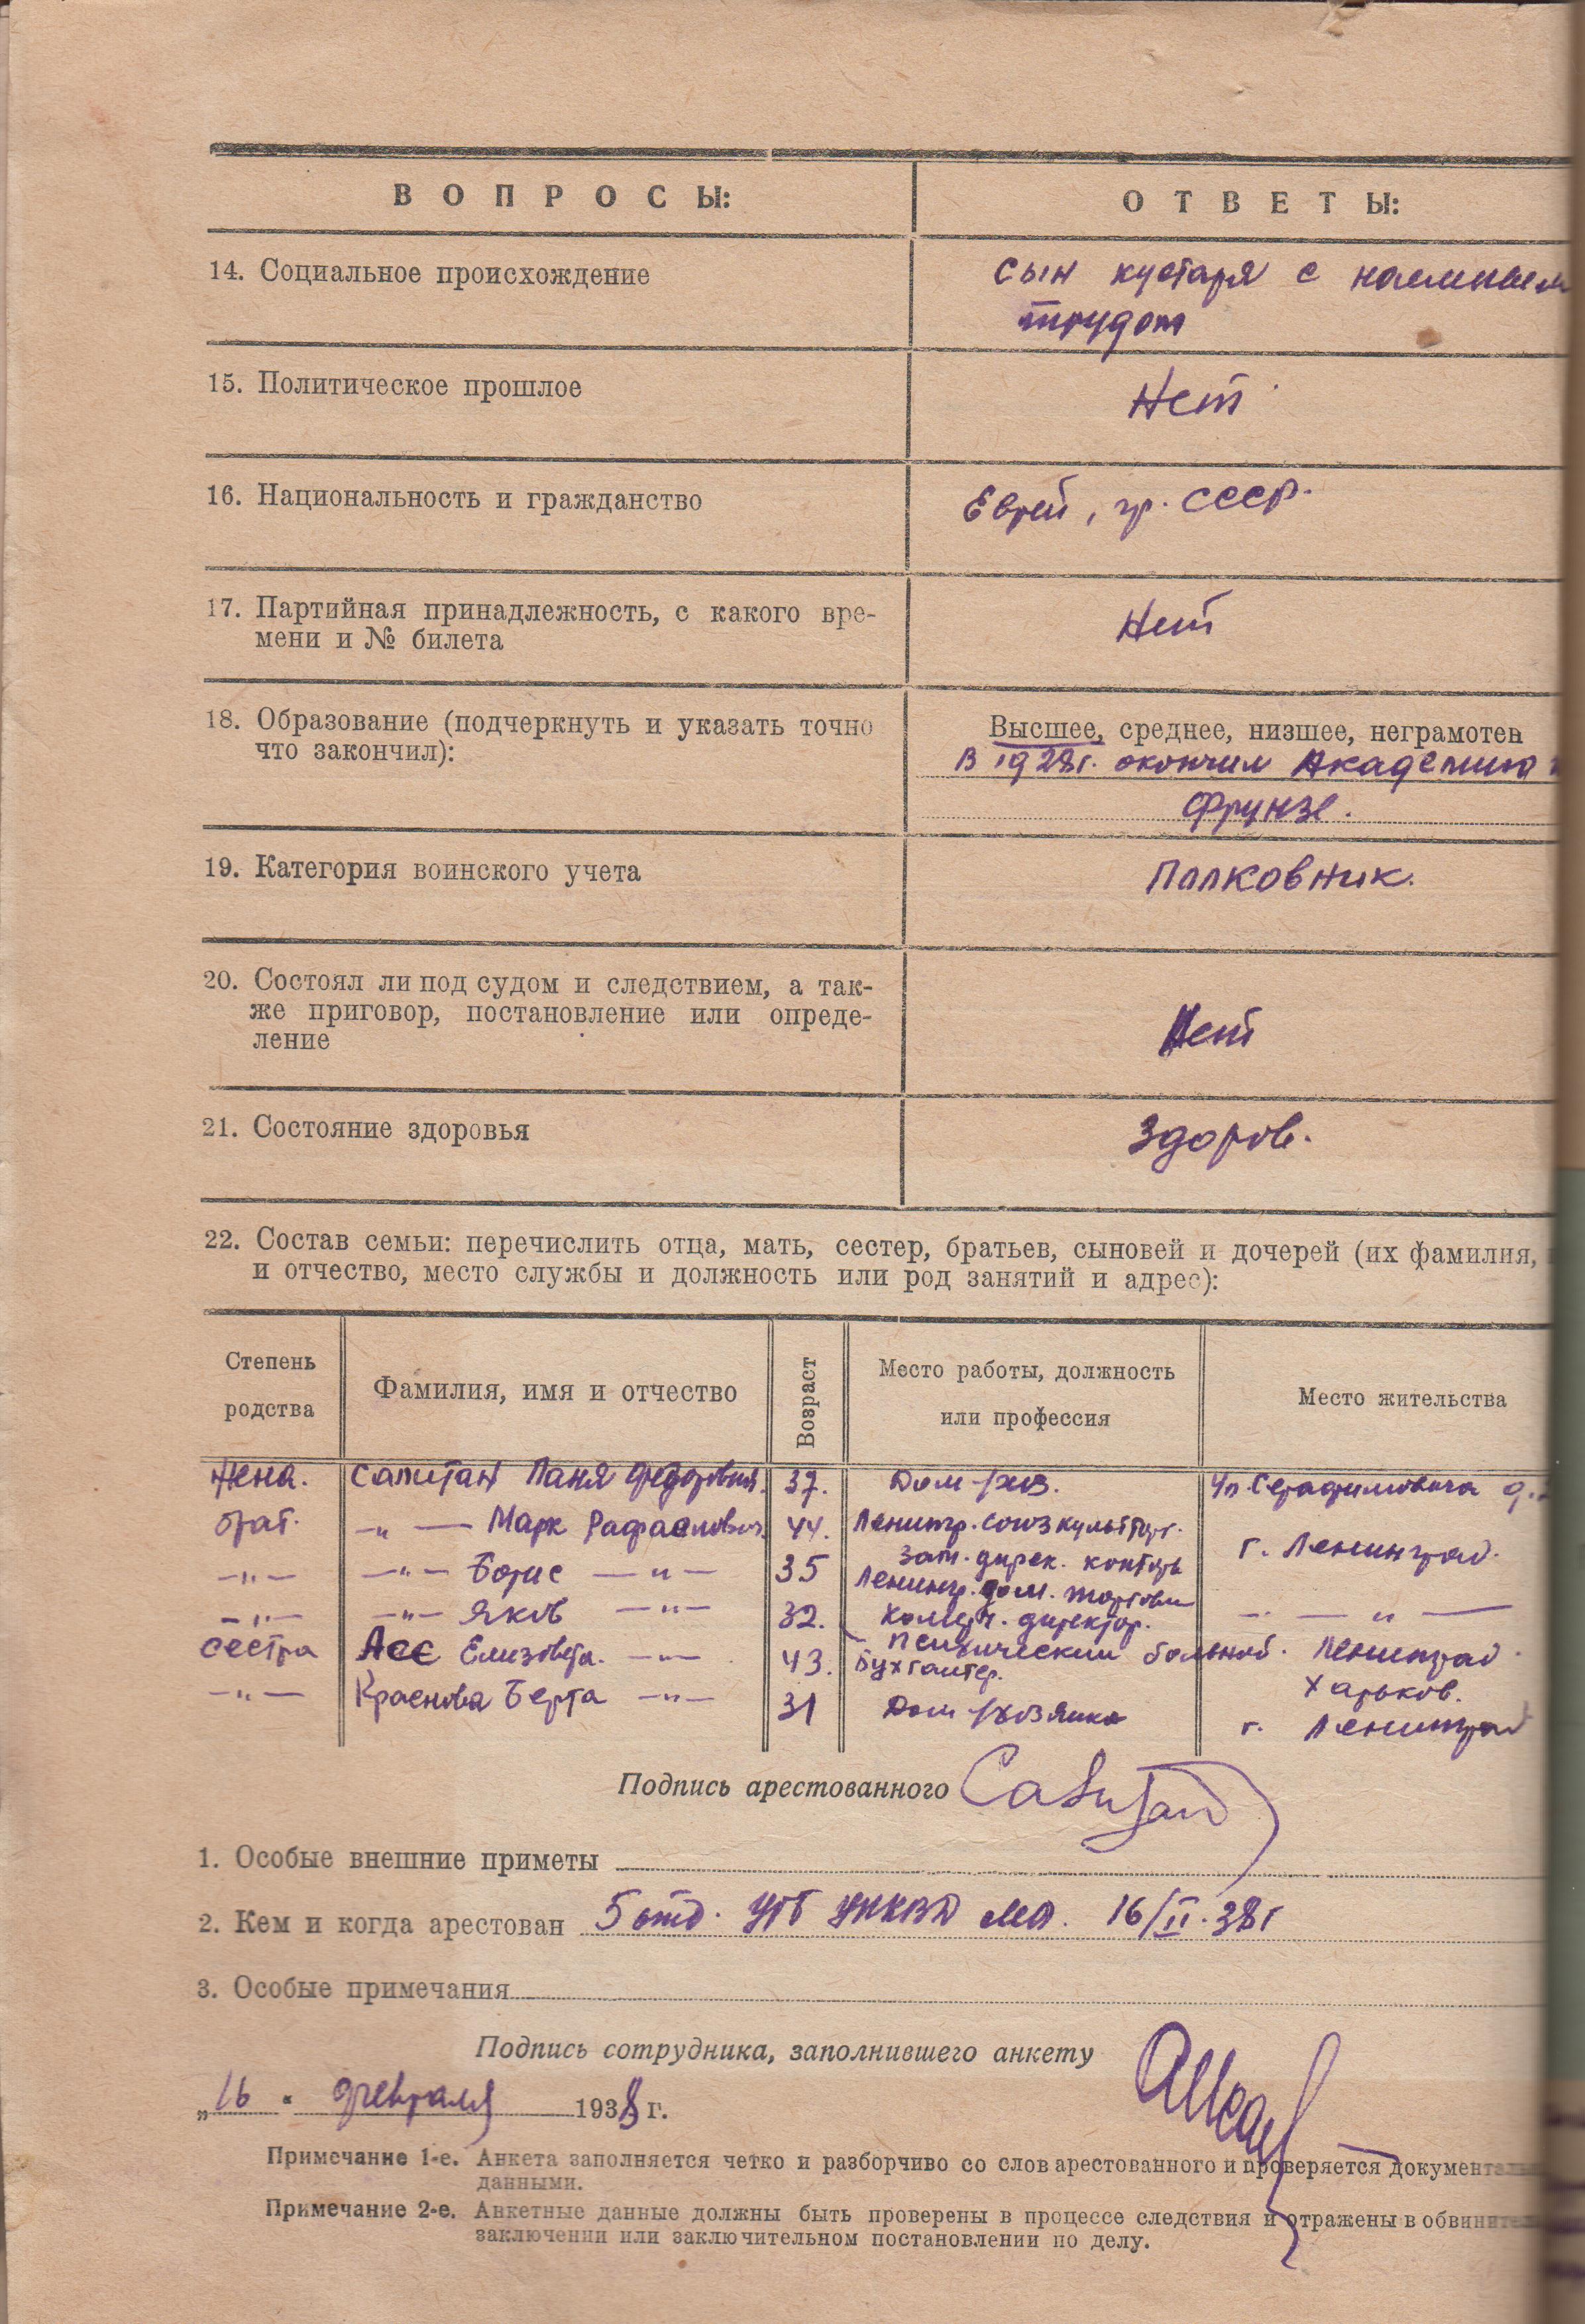 ВОПРОСЫ:
ОТВЕТЫ:
14. Социальное происхождение
сын кустаря с наемным
трудом
15. Политическое прошлое
Нет
16. Национальность и гражданство
Еврей, гр. СССР.
17. Партийная принадлежность, с какого вре-
мени и № билета
Нет
18. Образование (подчеркнуть и указать точно
что закончил):
Высшее, среднее, низшее, неграмотен
В 1928г. окончил Академию
Фрунзе.
19. Категория воинского учета
Полковник.
20. Состоял ли под судом и следствием, а так-
же приговор, постановление или опреде-
ление
Нет
21. Состояние здоровья
Здоров.
22. Состав семьи: перечислить отца, мать, сестер, братьев, сыновей и дочерей (их фамилия,
и отчество, место службы и должность или род занятий и адрес):
Степень родства
Фамилия, имя и отчество
Возраст
Место работы, должность или профессия
Место жительства
Жена. Сапитан Паня Федоровна. 37. Дом-хоз. Ул. Серафимовича д.
брат. —„— Марк Рафаелович. 44. Ленингр. союзкультторг. г. Ленинград.
зам. дирек. конторы
—„— —„— Борис —„— 35 Ленингр. дом. торговли
—„— —„— Яков —„— 32. Комерч. директор. — „ —
психический больной.
сестра Асс Елизовета. —„— 43. Бухгалтер. Ленинград.
Харьков.
—„— Краснова Берта —„— 31 Дом-хозяйка г. Ленинград
Подпись арестованного
1. Особые внешние приметы
2. Кем и когда арестован 5 отд. УГБ УНКВД МО. 16/II.38г
3. Особые примечания
Подпись сотрудника, заполнившего анкету
„16“ февраля 1938 г.
Примечание 1-е. Анкета заполняется четко и разборчиво со слов арестованного и проверяется документальн
данными.
Примечание 2-е. Анкетные данные должны быть проверены в процессе следствия и отражены в обвинител
заключении или заключительном постановлении по делу.